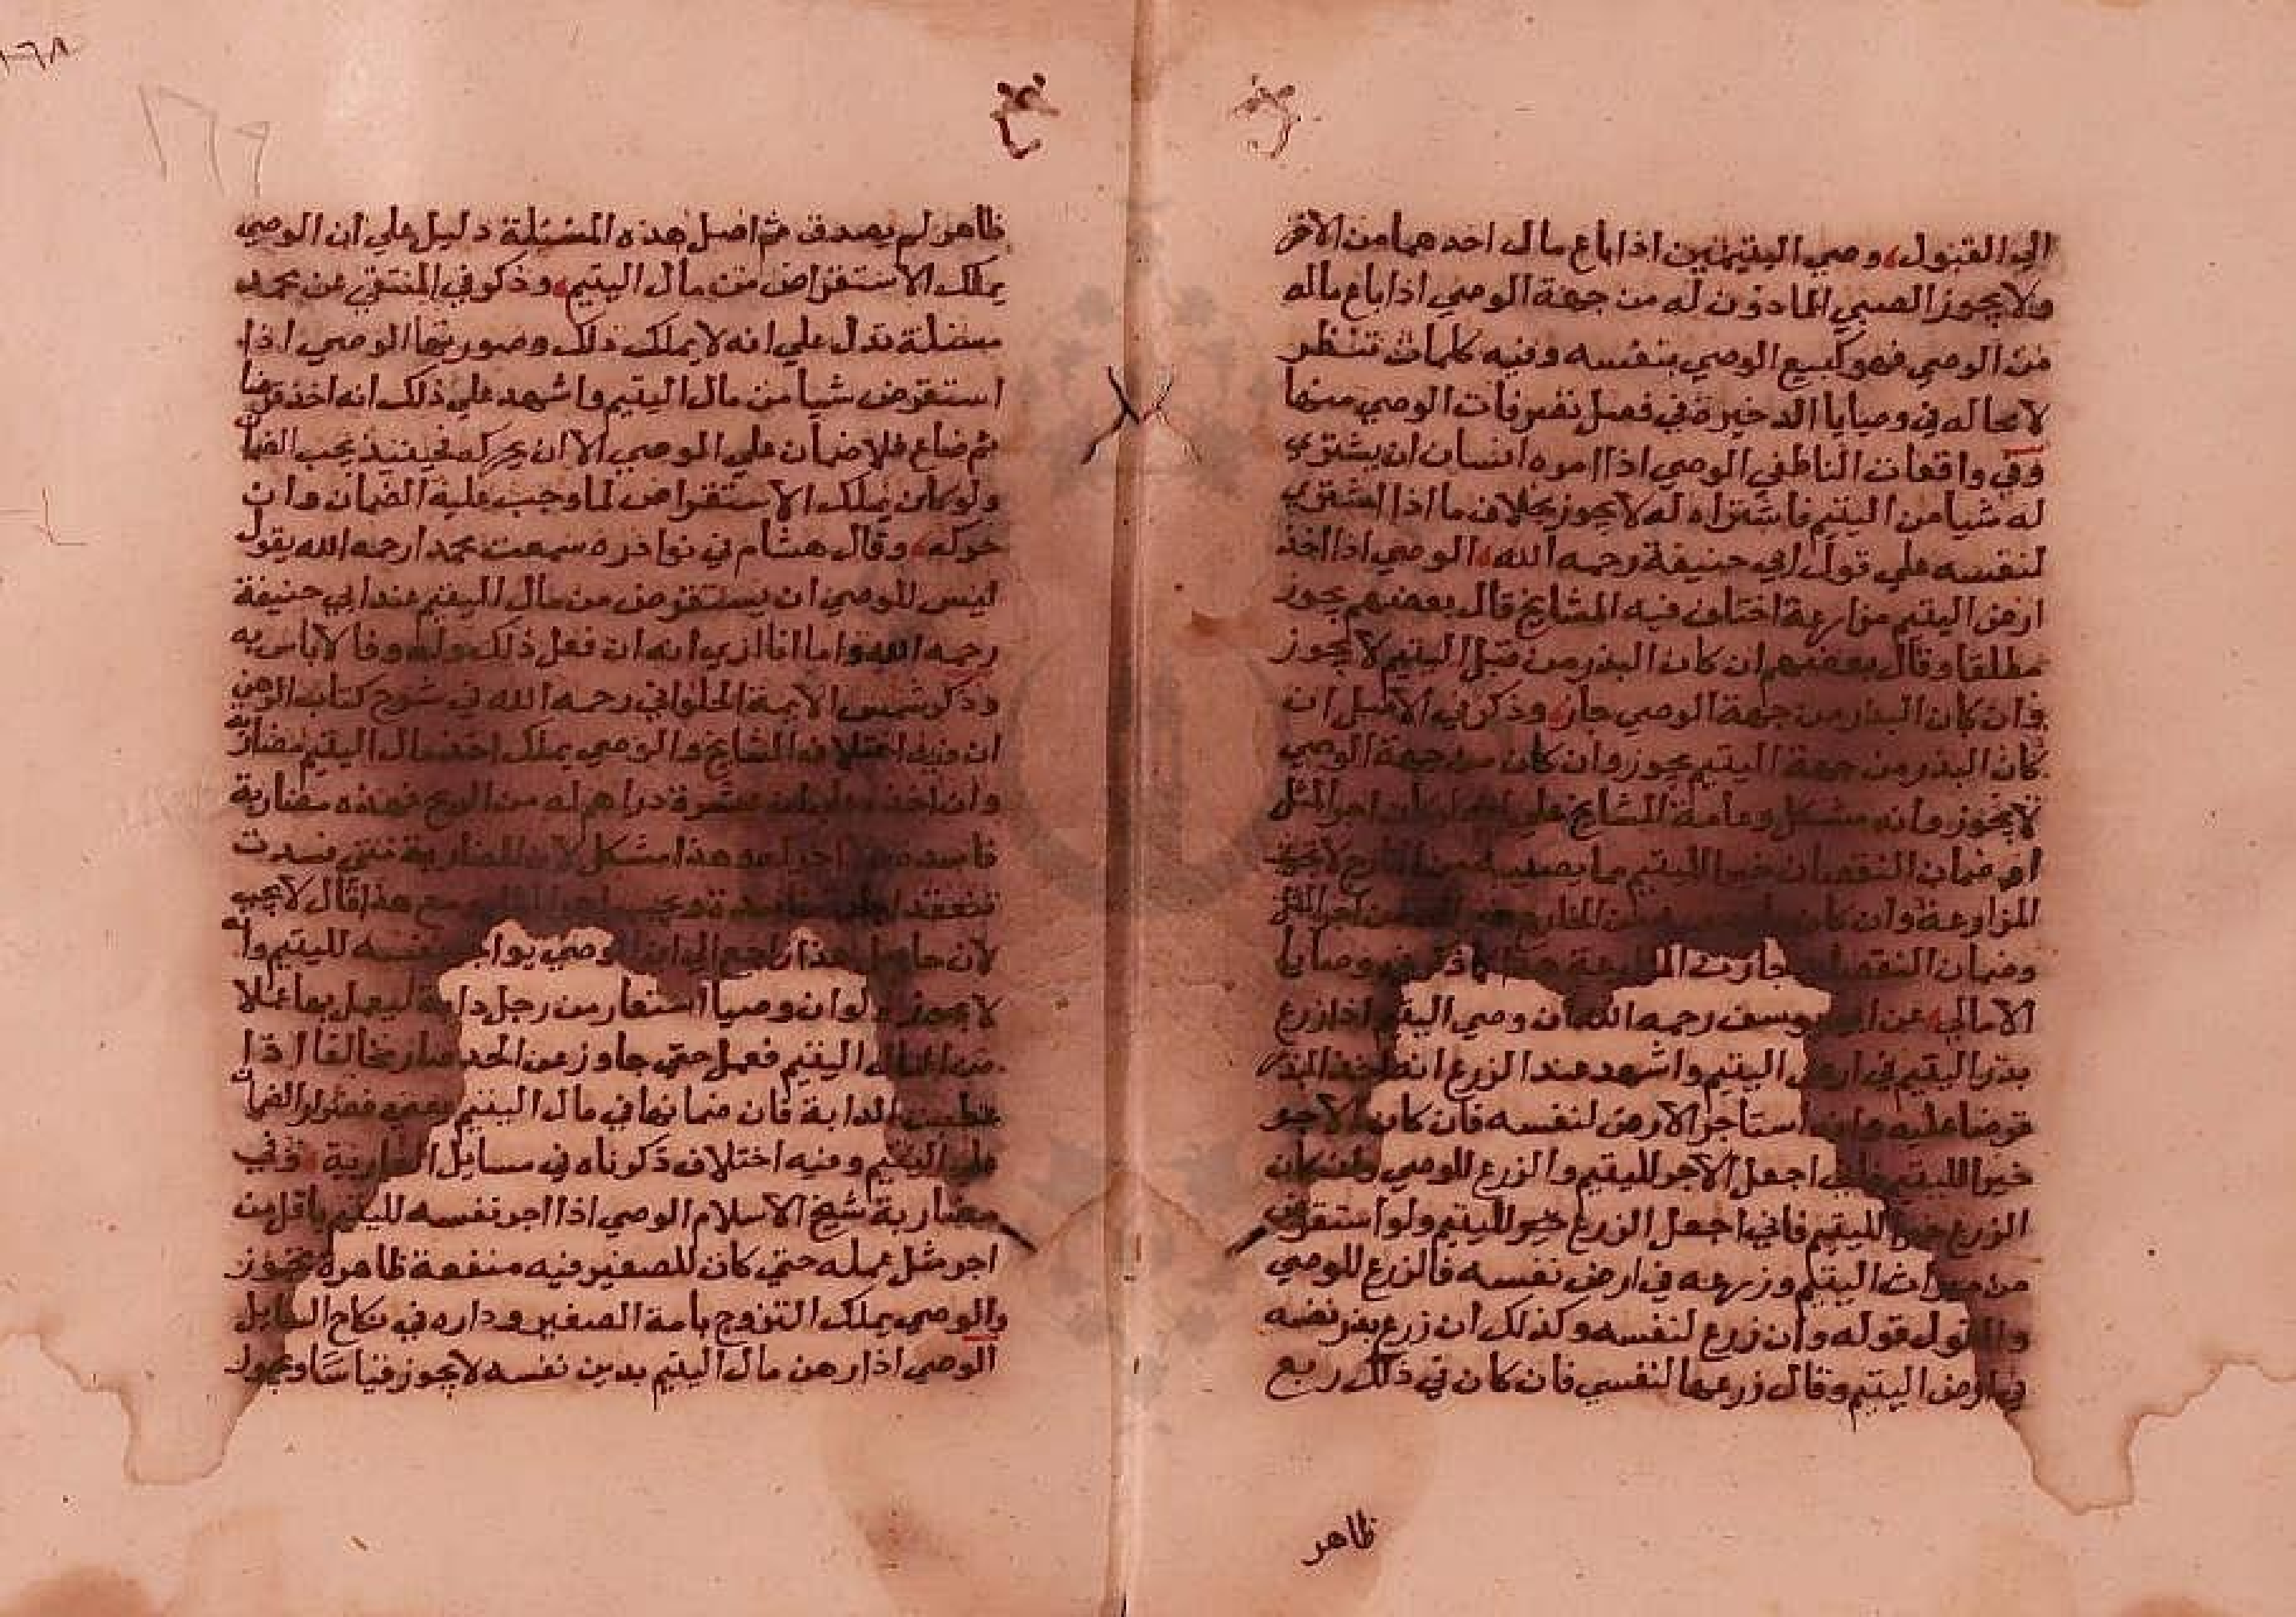 الي القبول وصي اليتيمين اذا باع مال احدهما من الاخر
ولا يجوز الصبي الماذون له من جهة الوصي اذا باع ماله
من الوصي فهو كبيع الوصي بنفسه وفيه كلمات تنظر
لا محاله في وصايا الدخيرة في فصل تصرفات الوصي منها
وفي واقعات الناطفي الوصي اذا امره انسان ان يشتري
له شيا من اليتيم فاشتراه له لا يجوز بخلاف ما اذا اشتري
لنفسه علي قول ابي حنيفة رحمه الله الوصي اذا اخذ
ارض اليتيم مزارعة اختلف فيه المشايخ قال بعضهم يجوز
مطلقا وقال بعضهم ان كان البذر من قبل اليتيم لا يجوز
وان كان البذر من جهة الوصي جاز وذكر في الاصل ان
كان البذر من جهة اليتيم يجوز وان كان من جهة الوصي
لا يجوز وانه مشكل وعامة المشايخ علي انه ان كان اجر المثل
او ضمان النقصان خيرا لليتيم مما يصيبه من الزرع لا يجوز
المزارعة وان كان من اجر المثل
وضمان النقصان جازت المزارعة وصايا
الامالي عن ابي يوسف رحمه الله ان وصي اليتيم اذا زرع
بذر اليتيم في ارض اليتيم واشهد عند الزرع انه اخذ البذر
قرضا عليه وانه استاجر الارض لنفسه فان كان الاجر
خيرا لليتيم فاني اجعل الاجر لليتيم والزرع للوصي وان كان
الزرع خيرا لليتيم فاني اجعل الزرع خير لليتيم ولو استقرض
من ميراث اليتيم وزرعه في ارض نفسه فالزرع للوصي
والقول قوله وان زرع لنفسه وكذلك ان زرع بذر نفسه
في ارض اليتيم وقال زرعها لنفسي فان كان في ذلك ربع
ظاهر
١٦٩
ظاهر لم يصدق ثم اصل هذه المسئلة دليل علي ان الوصي
يملك الاستقراض من مال اليتيم وذكر في المنتقي عن محمد
مسئلة تدل علي انه لا يملك ذلك وصورتها الوصي اذا
استقرض شيا من مال اليتيم واشهد علي ذلك انه اخذ قرضا
ثم ضاع فلا ضمان علي الوصي الا ان يحركه فحينئذ يجب الضمان
ولو كان يملك الاستقراض لما وجب عليه الضمان وان
حركه وقال هشام في نوادره سمعت محمدا رحمه الله يقول
ليس للوصي ان يستقرض من مال اليتيم عند ابي حنيفة
رحمه الله واما انا اري انه ان فعل ذلك وله وفا لا باس به
وذكر شمس الايمة الحلواني رحمه الله في شرح كتاب الرهن
ان فيه اختلاف المشايخ والوصي يملك اخذ مال اليتيم مضاربة
وان اخذ علي ان عشرة دراهم له من الربح فهذه مضاربة
فاسدة ولا اجر له وهذا مشكل لان المضاربة متي فسدت
تنعقد اجارة فاسدة ويجب اجر المثل ومع هذا قال لا يجب
لان حاصل هذا راجع الي ان الوصي يواجر نفسه لليتيم وانه
لا يجوز ولو ان وصيا استعار من رجل دابة ليعمل بها عملا
من اعمال اليتيم فعمل حتي جاوز عن الحد صار مخالفا اذا
عطبت الدابة فان ضمانها في مال اليتيم
علي اليتيم وفيه اختلاف ذكرناه في مسايل العارية وفي
مضاربة شيخ الاسلام الوصي اذا اجر نفسه لليتيم باقل من
اجر مثل عمله حتي كان للصغير فيه منفعة ظاهرة يجوز
والوصي يملك التزوج بامة الصغير وداره في نكاح
الوصي اذا رهن مال اليتيم بدين نفسه لا يجوز قياسا ويجوز